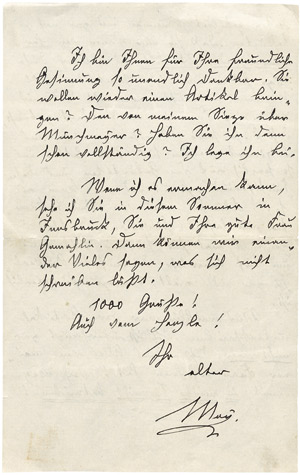 Ich bin Ihnen für Ihre freundliche
Gesinnung so unendlich dankbar. Sie
wollen wieder einen Artikel brin-
gen? Den von meinem Siege über
Münchmeyer? Haben Sie ihn denn
schon vollständig? Ich lege ihn bei.
Wenn ich es ermachen kann,
sehe ich Sie in diesem Sommer in
Innsbruck, Sie und Ihre gute Frau
Gemahlin. Dann können wir einan-
der Vieles sagen, was sich nicht
schreiben läßt.
1000 Grüße!
Auch vom Herzle!
Ihr
alter
May.